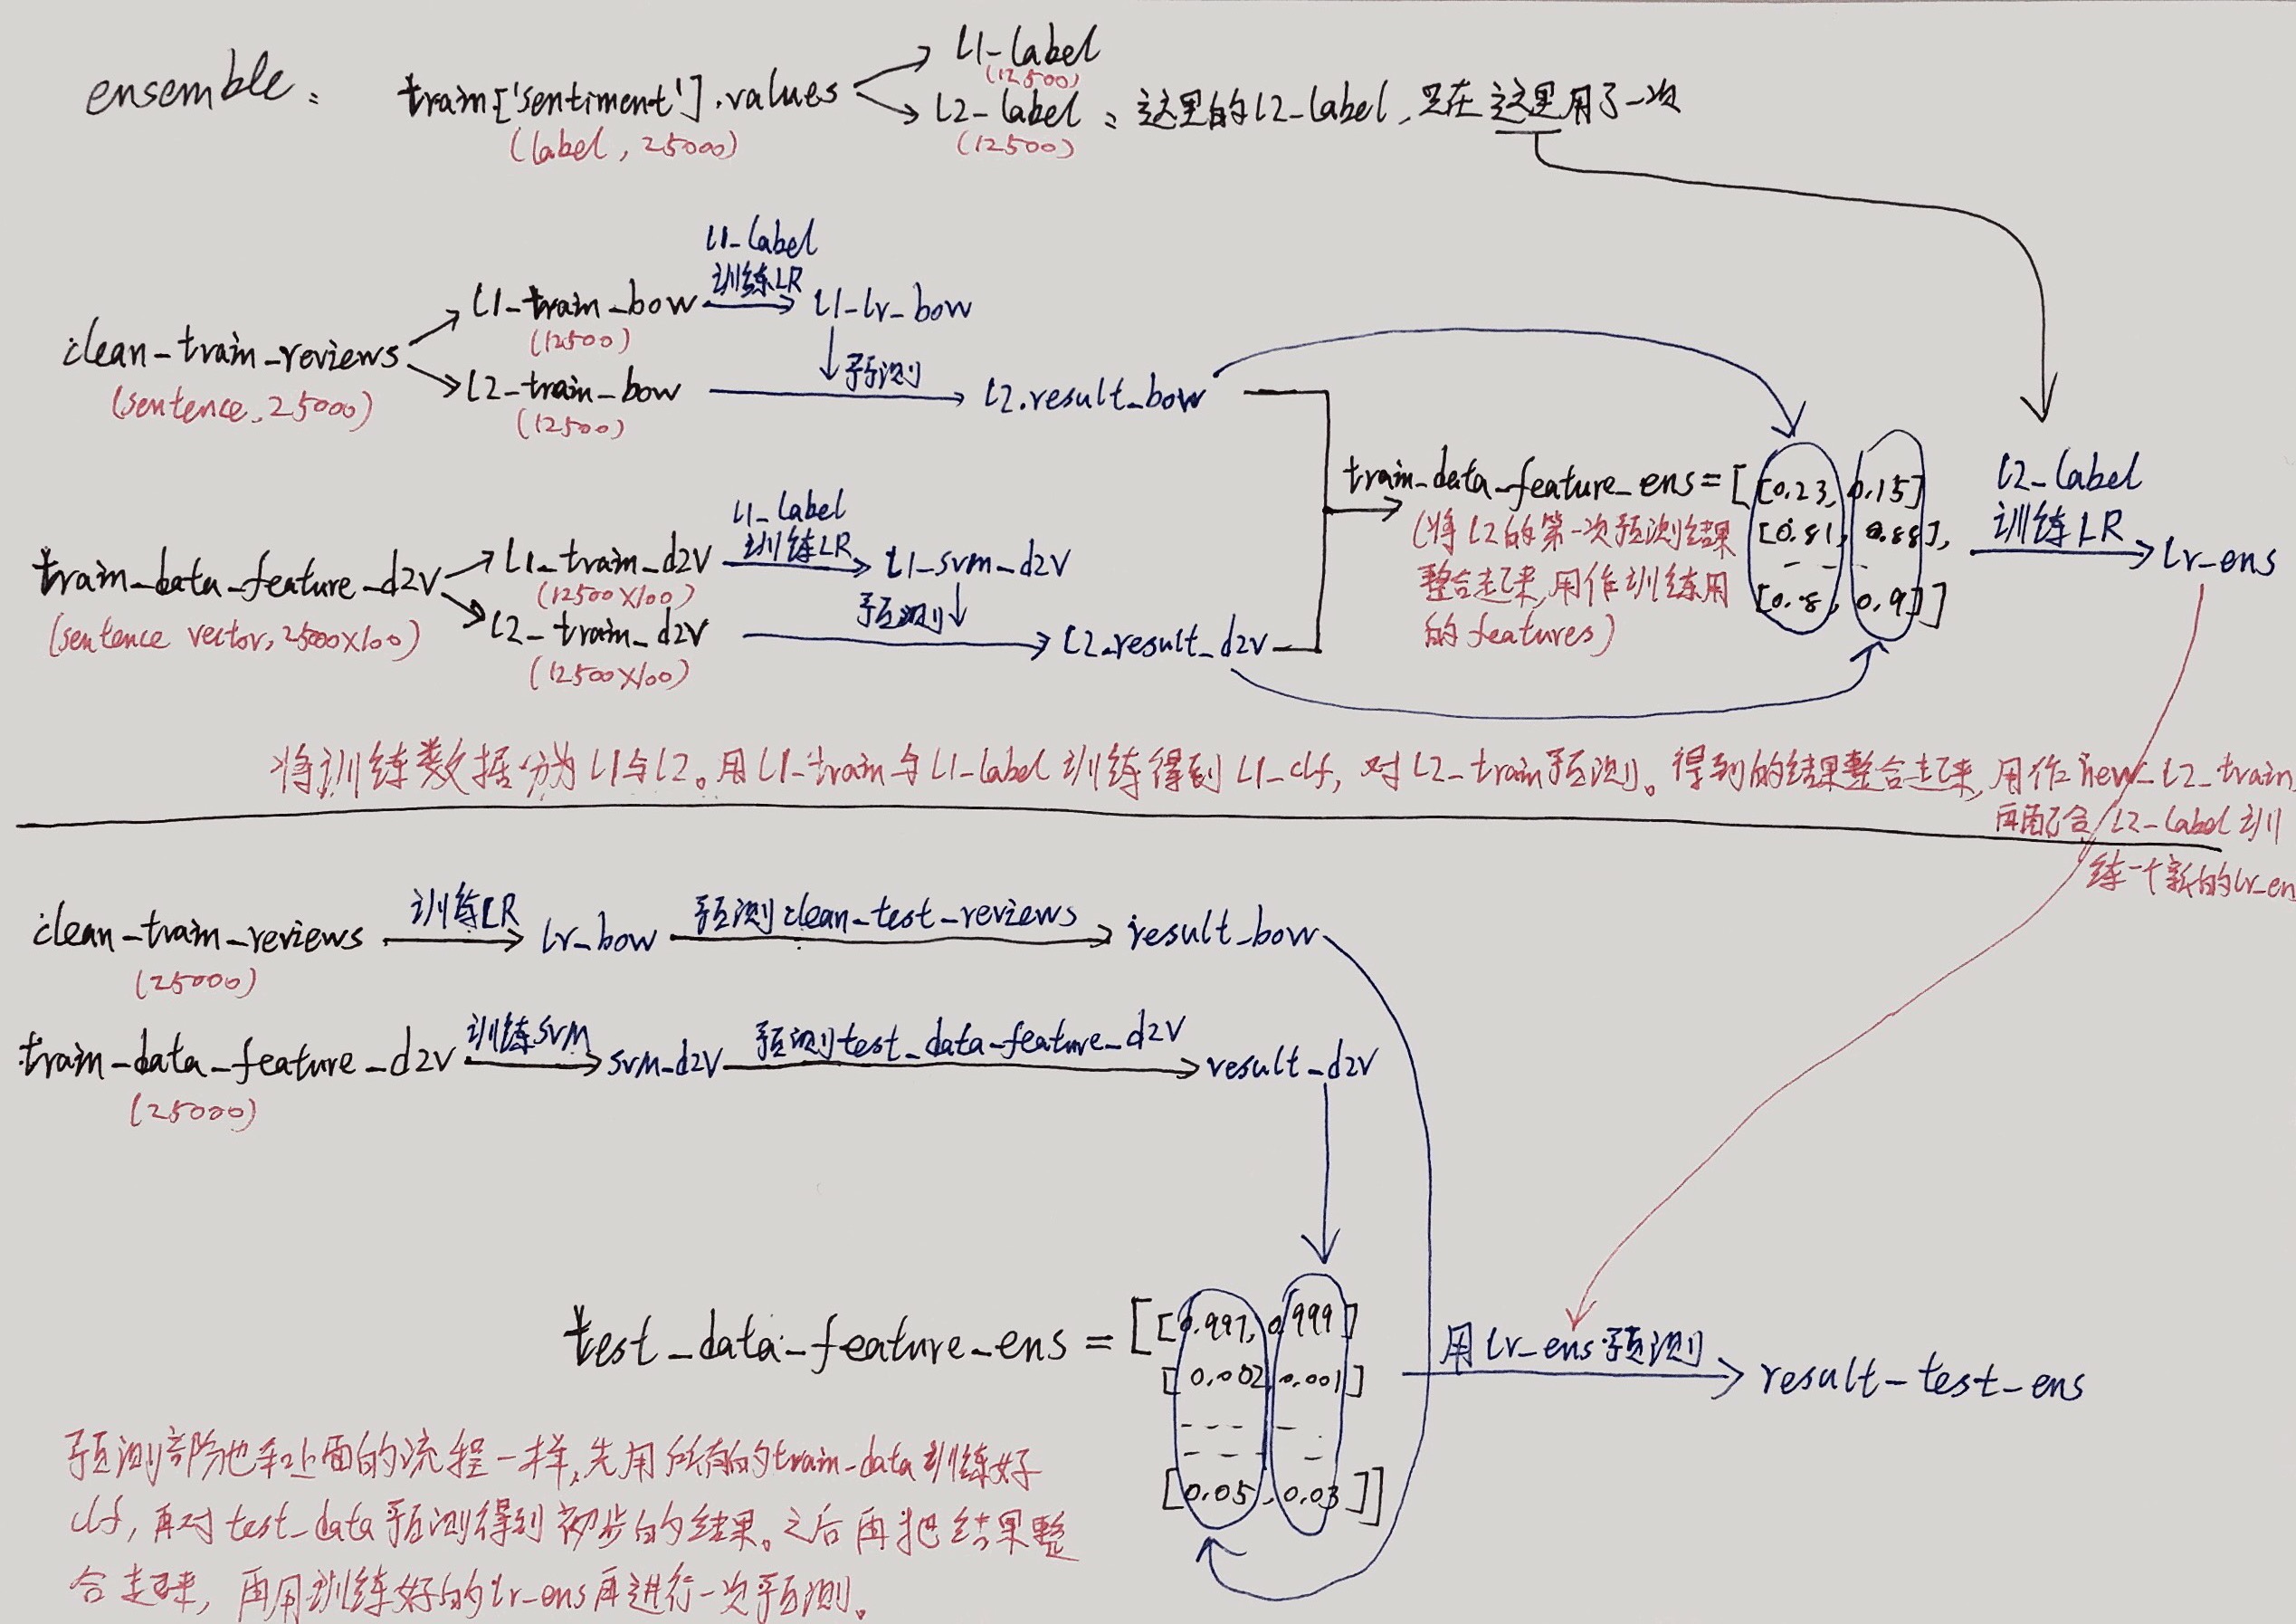 ensemble:
train['sentiment'].values
(label, 25000)
l1-label
(12500)
l2-label : 这里的l2-label,只在这里用了一次
(12500)
clean-train-reviews
(sentence, 25000)
l1-train-bow
(12500)
l1-label
训练LR
l1-lr-bow
预测
l2-train-bow
(12500)
l2.result-bow
train-data-feature-d2v
(sentence vector, 2500×100)
l1-train-d2v
(12500×100)
l1-label
训练LR
l1-svm-d2v
预测
l2-train-d2v
(12500×100)
l2-result-d2v
train-data-feature-ens=[[0.23, 0.15]
[0.81, 0.88],
- - -
[0.8, 0.9]]
(将l2的第一次预测结果
整合起来,用作训练用
的features)
l2-label
训练LR
lr-ens
将训练数据分为l1与l2。用l1-train与l1-label训练得到l1-clf,对l2-train预测。得到的结果整合起来,用作new-l2-train,
再配合l2-label训
练一个新的lr-en
clean-train-reviews
(25000)
训练LR
lr-bow
预测clean-test-reviews
result-bow
train-data-feature-d2v
(25000)
训练SVM
svm-d2v
预测test-data-feature-d2v
result-d2v
test-data-feature-ens=[[0.997, 0.999]
[0.002, 0.001]
- - - -
- - - -
[0.05, 0.03]]
用lr-ens预测
result-test-ens
预测部份也和上面的流程一样,先用所有的train-data训练好
clf,再对test-data预测得到初步的结果。之后再把结果整
合起来,再用训练好的lr-ens再进行一次预测。